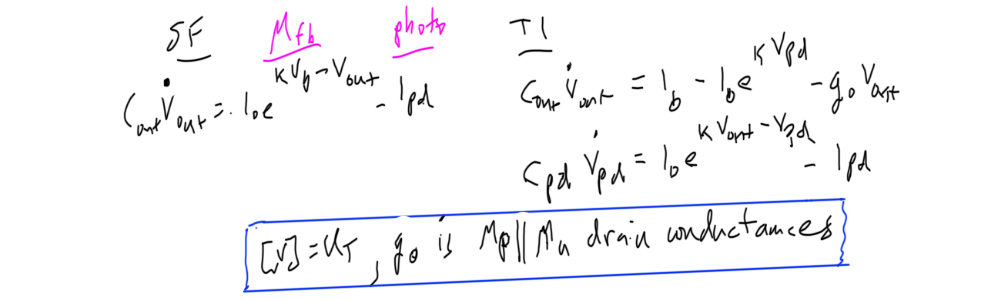 SF M_fb photo TI
C_out V̇_out = I_0 e^{κV_b - V_out} - I_pd
C_out V̇_out = I_b - I_0 e^{κV_pd} - g_0 V_out
C_pd V̇_pd = I_0 e^{κV_out - V_pd} - I_pd
[V]=U_T, g_0 is M_p||M_n drain conductances